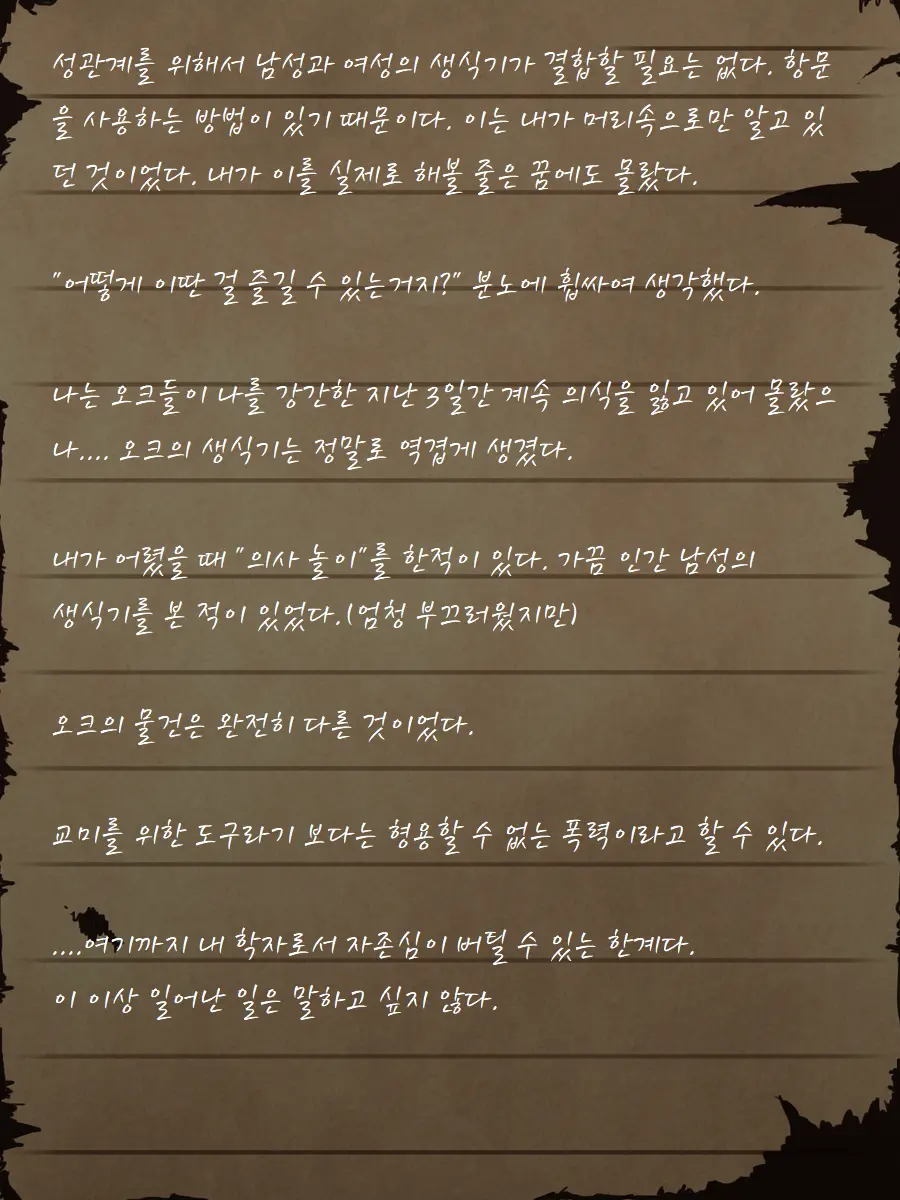 성관계를 위해서 남성과 여성의 생식기가 결합할 필요는 없다. 항문
을 사용하는 방법이 있기 때문이다. 이는 내가 머리속으로만 알고 있
던 것이었다. 내가 이를 실제로 해볼 줄은 꿈에도 몰랐다.
"어떻게 이딴 걸 즐길 수 있는거지?" 분노에 휩싸여 생각했다.
나는 오크들이 나를 강간한 지난 3일간 계속 의식을 잃고 있어 몰랐으
나.... 오크의 생식기는 정말로 역겹게 생겼다.
내가 어렸을 때 "의사 놀이"를 한적이 있다. 가끔 인간 남성의
생식기를 본 적이 있었다.(엄청 부끄러웠지만)
오크의 물건은 완전히 다른 것이었다.
교미를 위한 도구라기 보다는 형용할 수 없는 폭력이라고 할 수 있다.
....여기까지 내 학자로서 자존심이 버틸 수 있는 한계다.
이 이상 일어난 일은 말하고 싶지 않다.